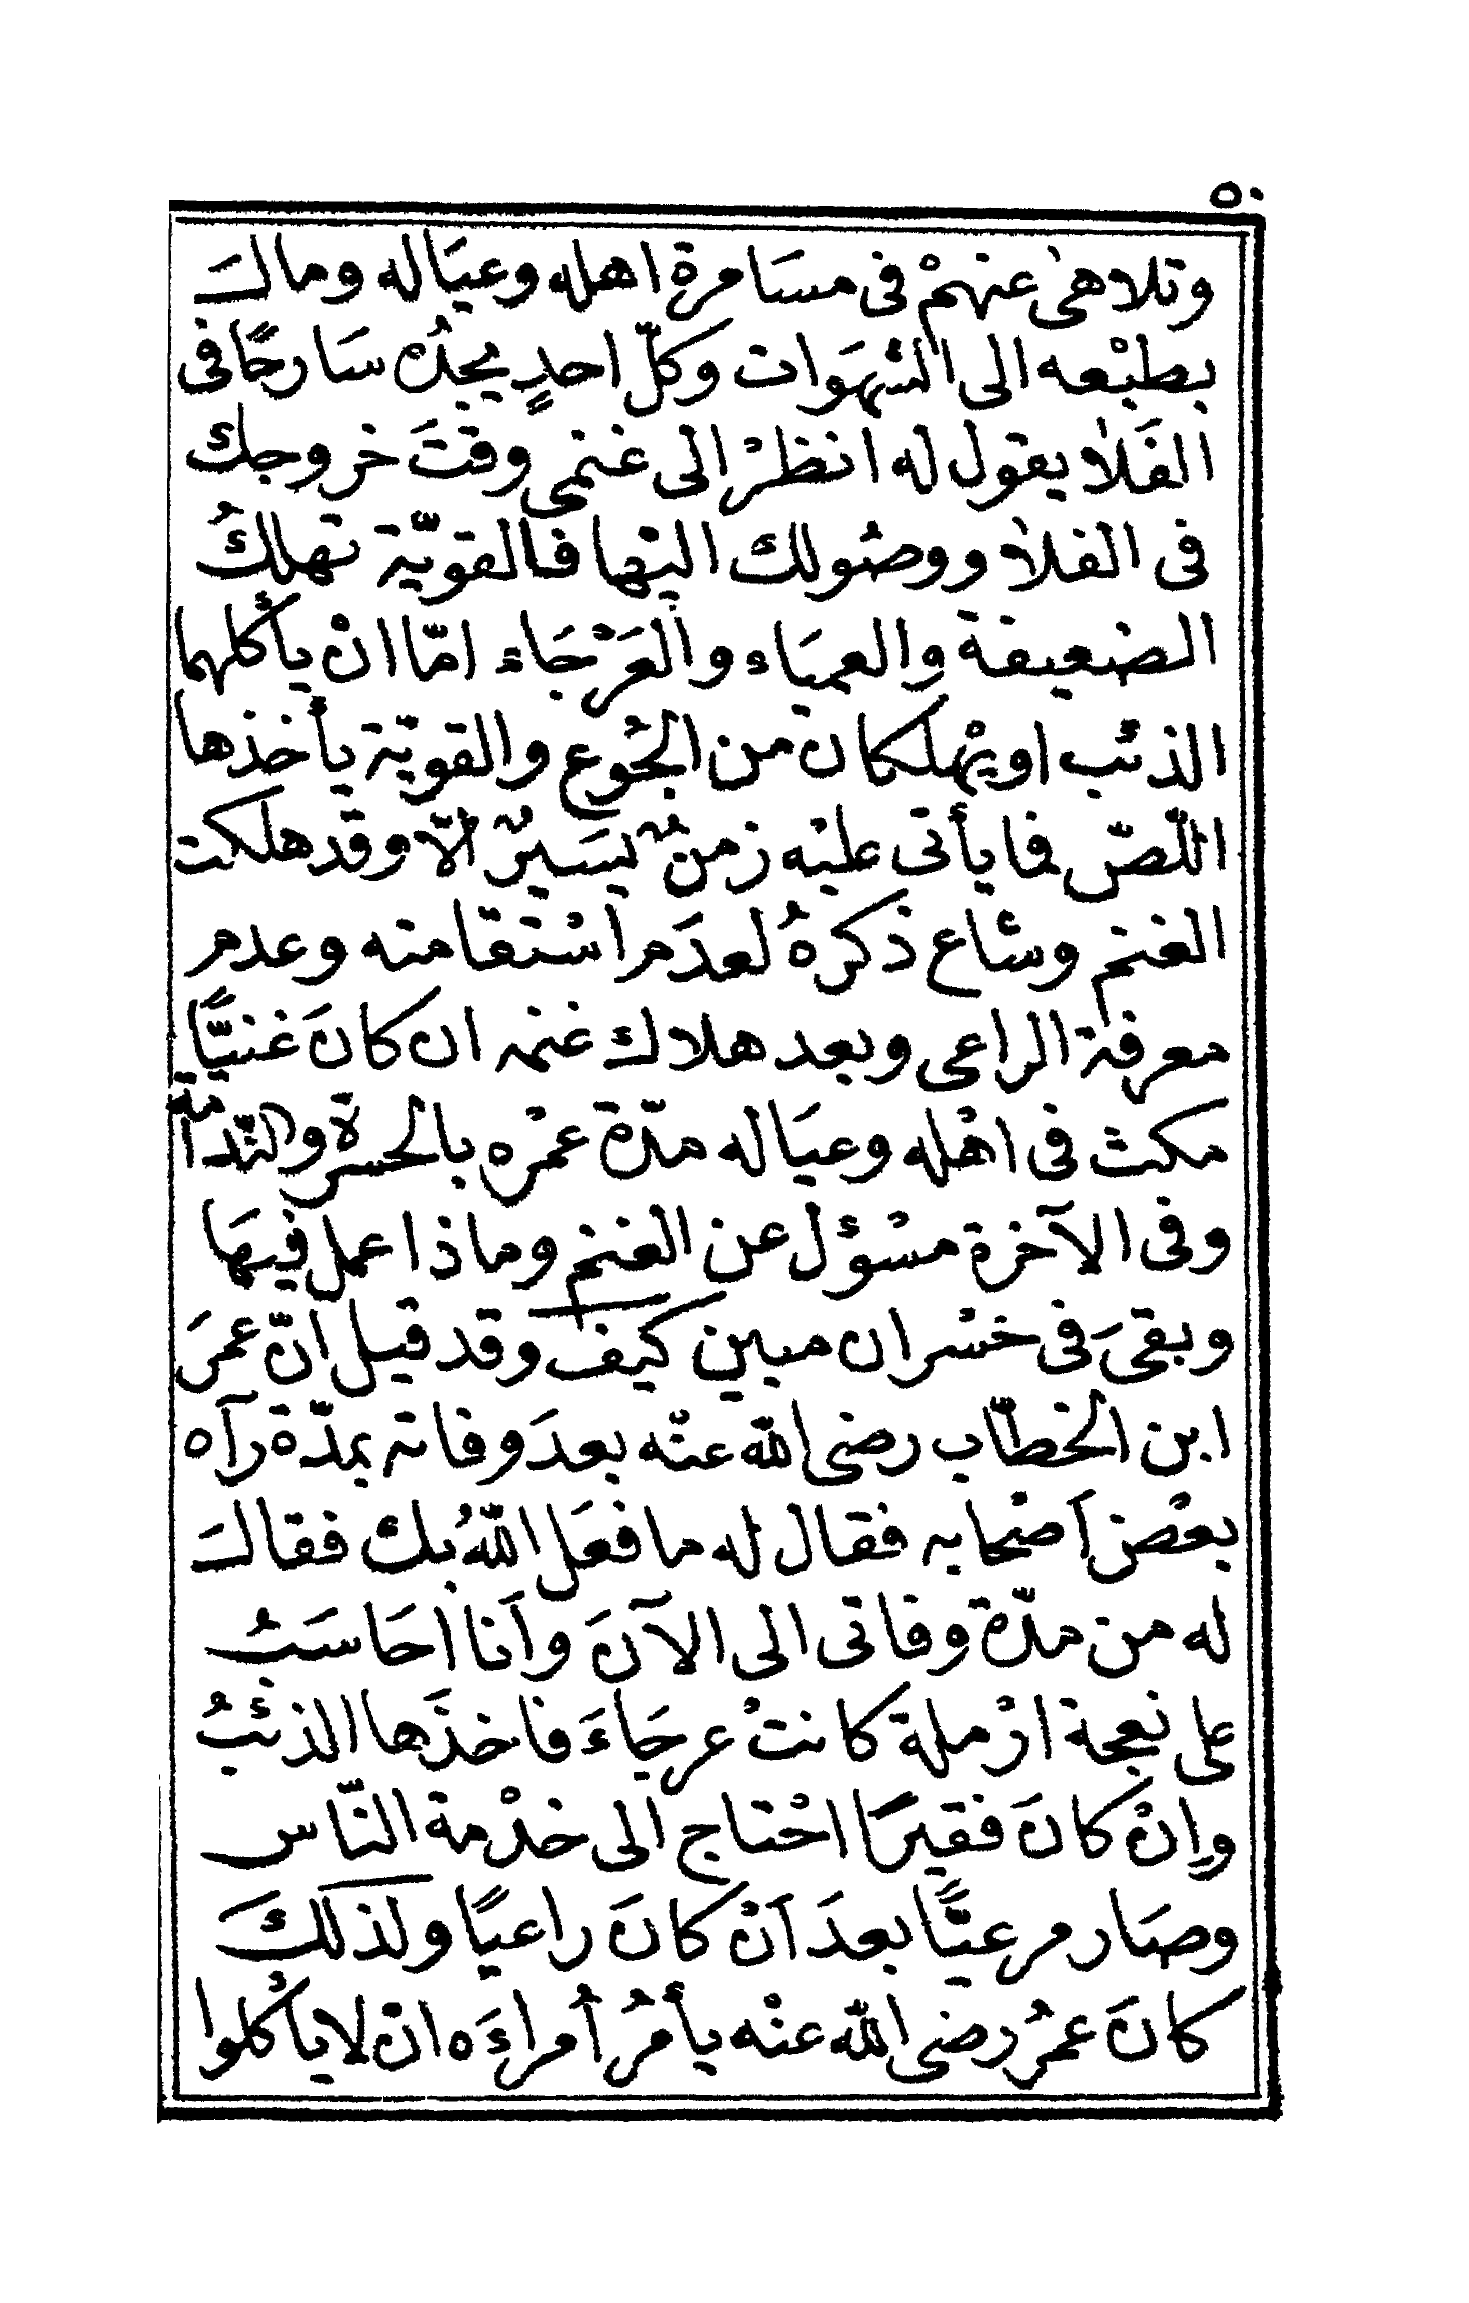 ٥٠
وتلاهى عنهمْ فى مسَامرة اهله وعيَاله ومالَ
بطبْعه الى الشهَوات وكلّ احدٍ يجدُه سَارحًا فى
الفَلا يقول له انظرْ الى غنمى وقتَ خروجك
فى الفلا ووصُولك اليْها فالقويّة تهلكُ
الضعيفة والعميَاء والعَرْجَاء امّا انْ يأكلهما
الذئب او يهْلكان من الجُوع والقويّة يأخذها
اللّصّ فما يأتى عليْه زمنٌ يسَيرٌ الّا وقد هلكت
الغنم وشاع ذكرهُ لعدَم اسْتقامته وعدم
معرفة الراعى وبعد هلاك غنمه ان كانَ غنيًّا
مكث فى اهْله وعيَاله مدّة عمْره بالحسرة والنّدامة
وفى الآخرة مسْؤل عن الغنم وماذا عمل فيهَا
وبقىَ فى خسْران مبين كيف وقد قيل انّ عمرَ
ابن الخطّاب رضى الله عنْه بعدَ وفاته بمدّة رآه
بعْض أصْحابه فقال له ما فعَل اللهُ بك فقالَ
له من مدّة وفاتى الى الآنَ وأنا احَاسَبُ
على نعجة ارْملة كانتْ عرجَاءَ فاخذَها الذئبُ
وإنْ كانَ فقيرًا احْتاج الى خدْمة النّاس
وصَار مرعيًّا بعدَ أنْ كانَ راعيًا ولذلكَ
كانَ عمرُ رضى الله عنْه يأمرُ أمراءَه انْ لا يأكلوا